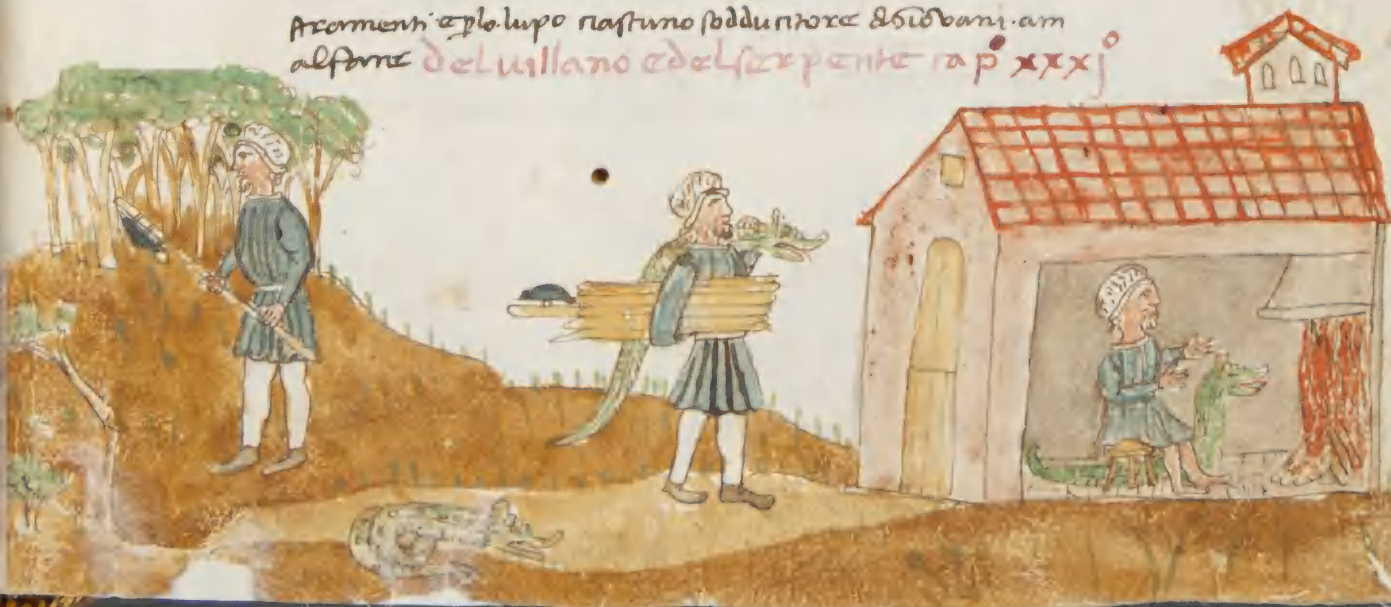 stramenti e p lo lupo ciascuno sodducitore di giovani am
alfare del villano e del serpente cap° xxxj°